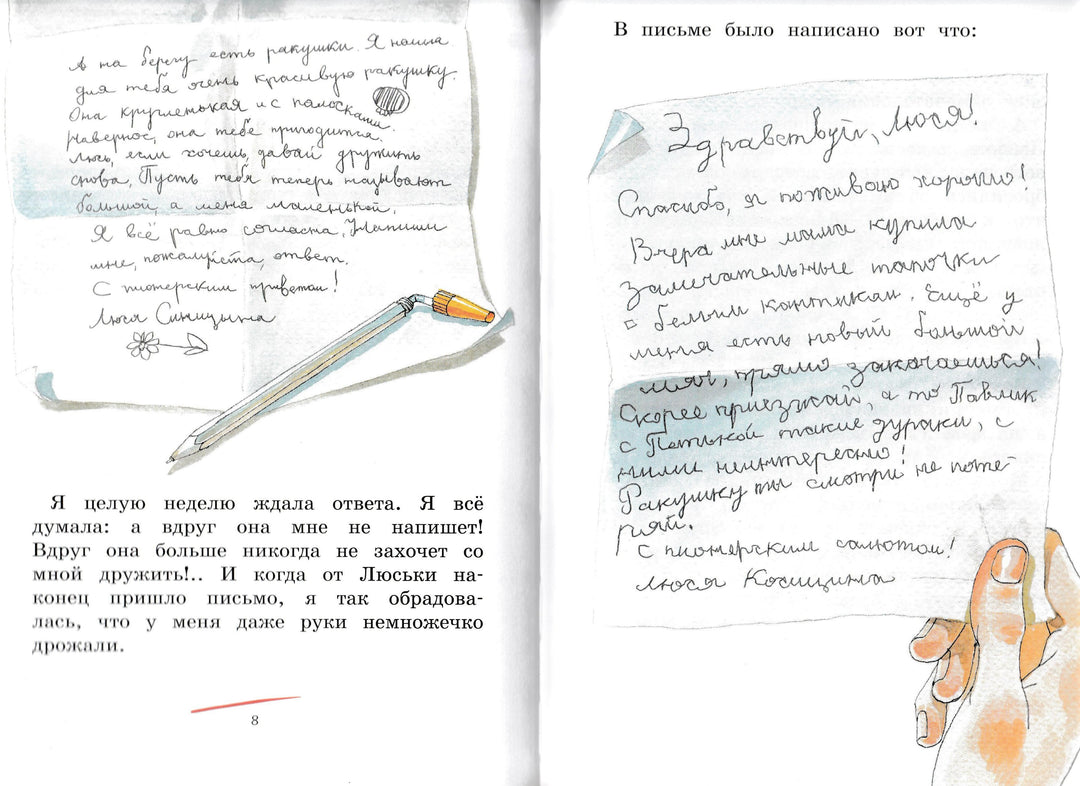 А на берегу есть ракушки. Я нашла
для тебя очень красивую ракушку.
Она кругленькая и с полосками.
Наверное, она тебе пригодится.
Люсь, если хочешь, давай дружить
снова, Пусть тебя теперь называют
большой, а меня маленькой.
Я всё равно согласна. Напиши
мне, пожалуйста, ответ.
С пионерским приветом!
Люся Синицына
Я целую неделю ждала ответа. Я всё
думала: а вдруг она мне не напишет!
Вдруг она больше никогда не захочет со
мной дружить!.. И когда от Люськи на-
конец пришло письмо, я так обрадова-
лась, что у меня даже руки немножечко
дрожали.
8
В письме было написано вот что:
Здравствуй, Люся!
Спасибо, я поживаю хорошо!
Вчера мне мама купила
замечательные тапочки
с белым кантиком. Ещё у
меня есть новый большой
мяч, прямо закачаешься!
Скорее приезжай, а то Павлик
с Петькой такие дураки, с
ними неинтересно!
Ракушку ты смотри не поте-
ряй.
С пионерским салютом!
Люся Косицына